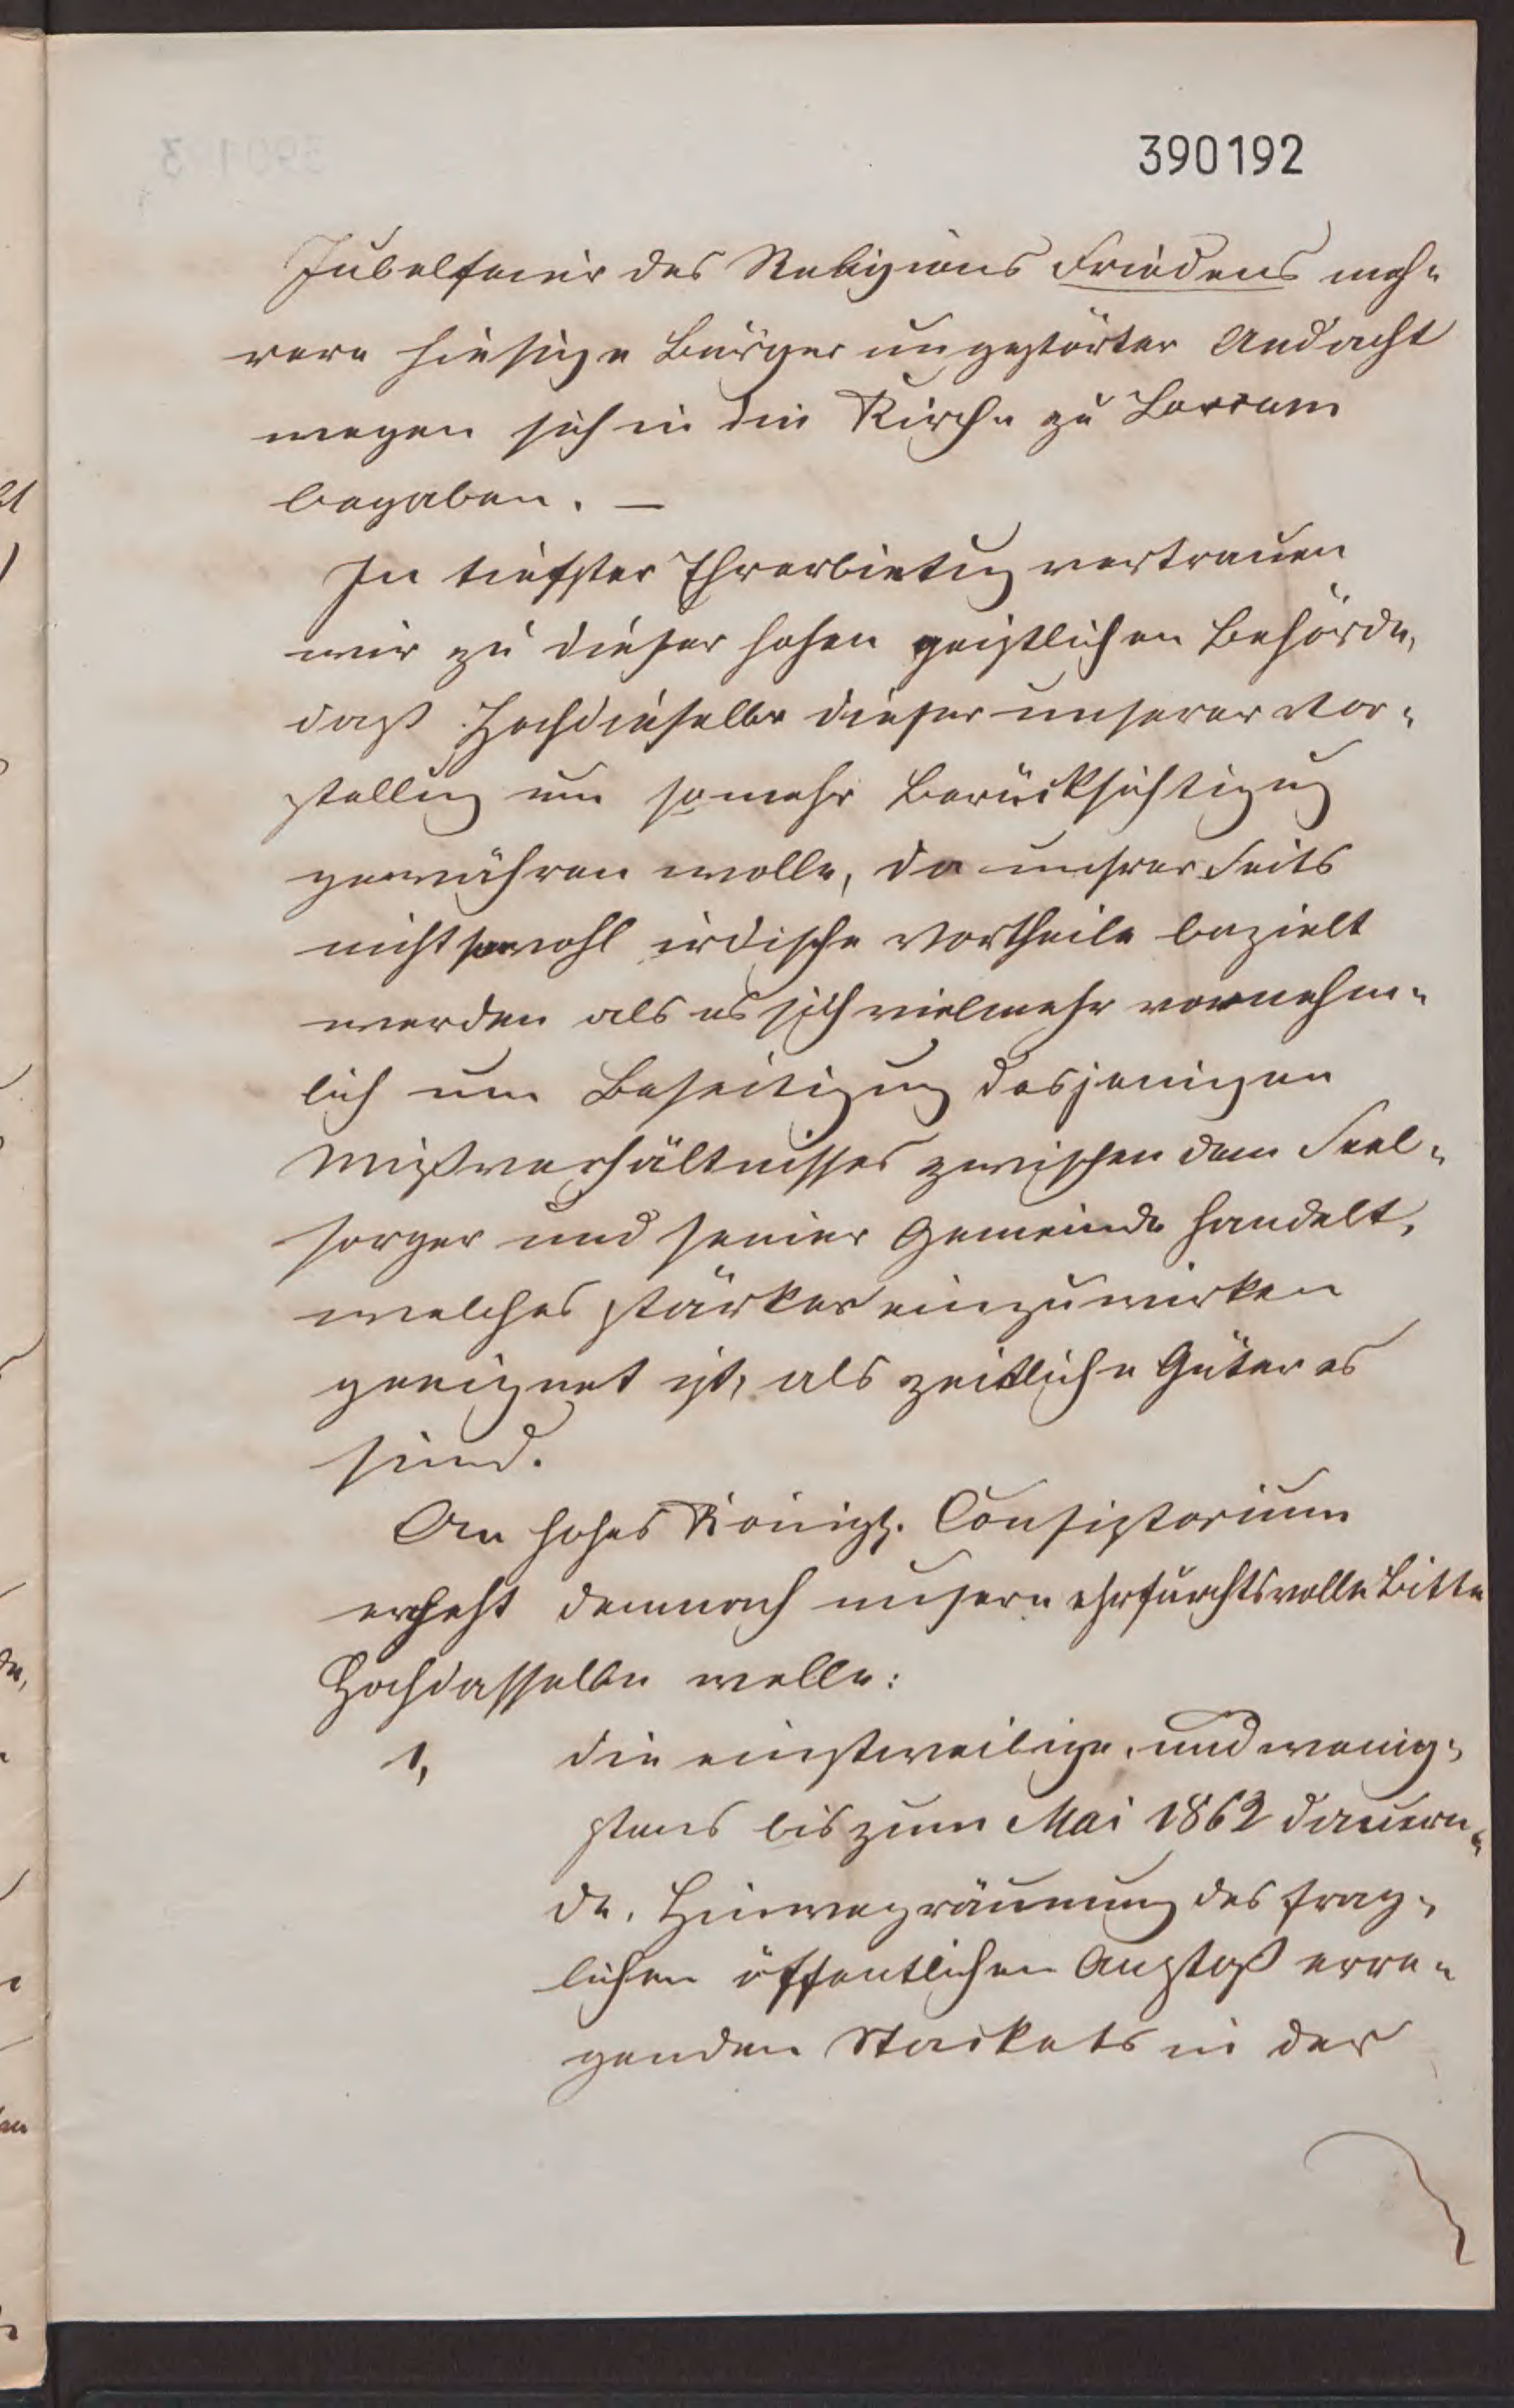 390192
Jubelfeier des Religions Friedens meh-
rere hiesige Bürger ungestörter Andacht
wegen sich in die Kirche zu Borrum
begaben. —
In tiefster Ehrerbietung vertrauen
wir zu dieser hohen geistlichen Behörde,
daß Hochdieselbe dieser unserer Vor-
stellung um somehr Berücksichtigung
gewähren wolle, da unsrer Seits
nicht sowohl irdische Vortheile bezielt
werden als es sich vielmehr vornehm-
lich um Beseitigung desjenigen
Mißverhältnisses zwischen dem Seel-
sorger und seiner Gemeinde handelt,
welches stärker einzuwirken
geeignet ist, als zeitliche Güter es
sind.
An hohes Königl. Consistorium
ergeht demnach unsere ehrfurchtsvolle Bitte
Hochdasselbe wolle:
1, die einstweilige, und wenig-
stens bis zum Mai 1862 dauern-
de, Hinwegräumung des frag-
lichen öffentlichen Anstoß erre-
genden Stackets in der